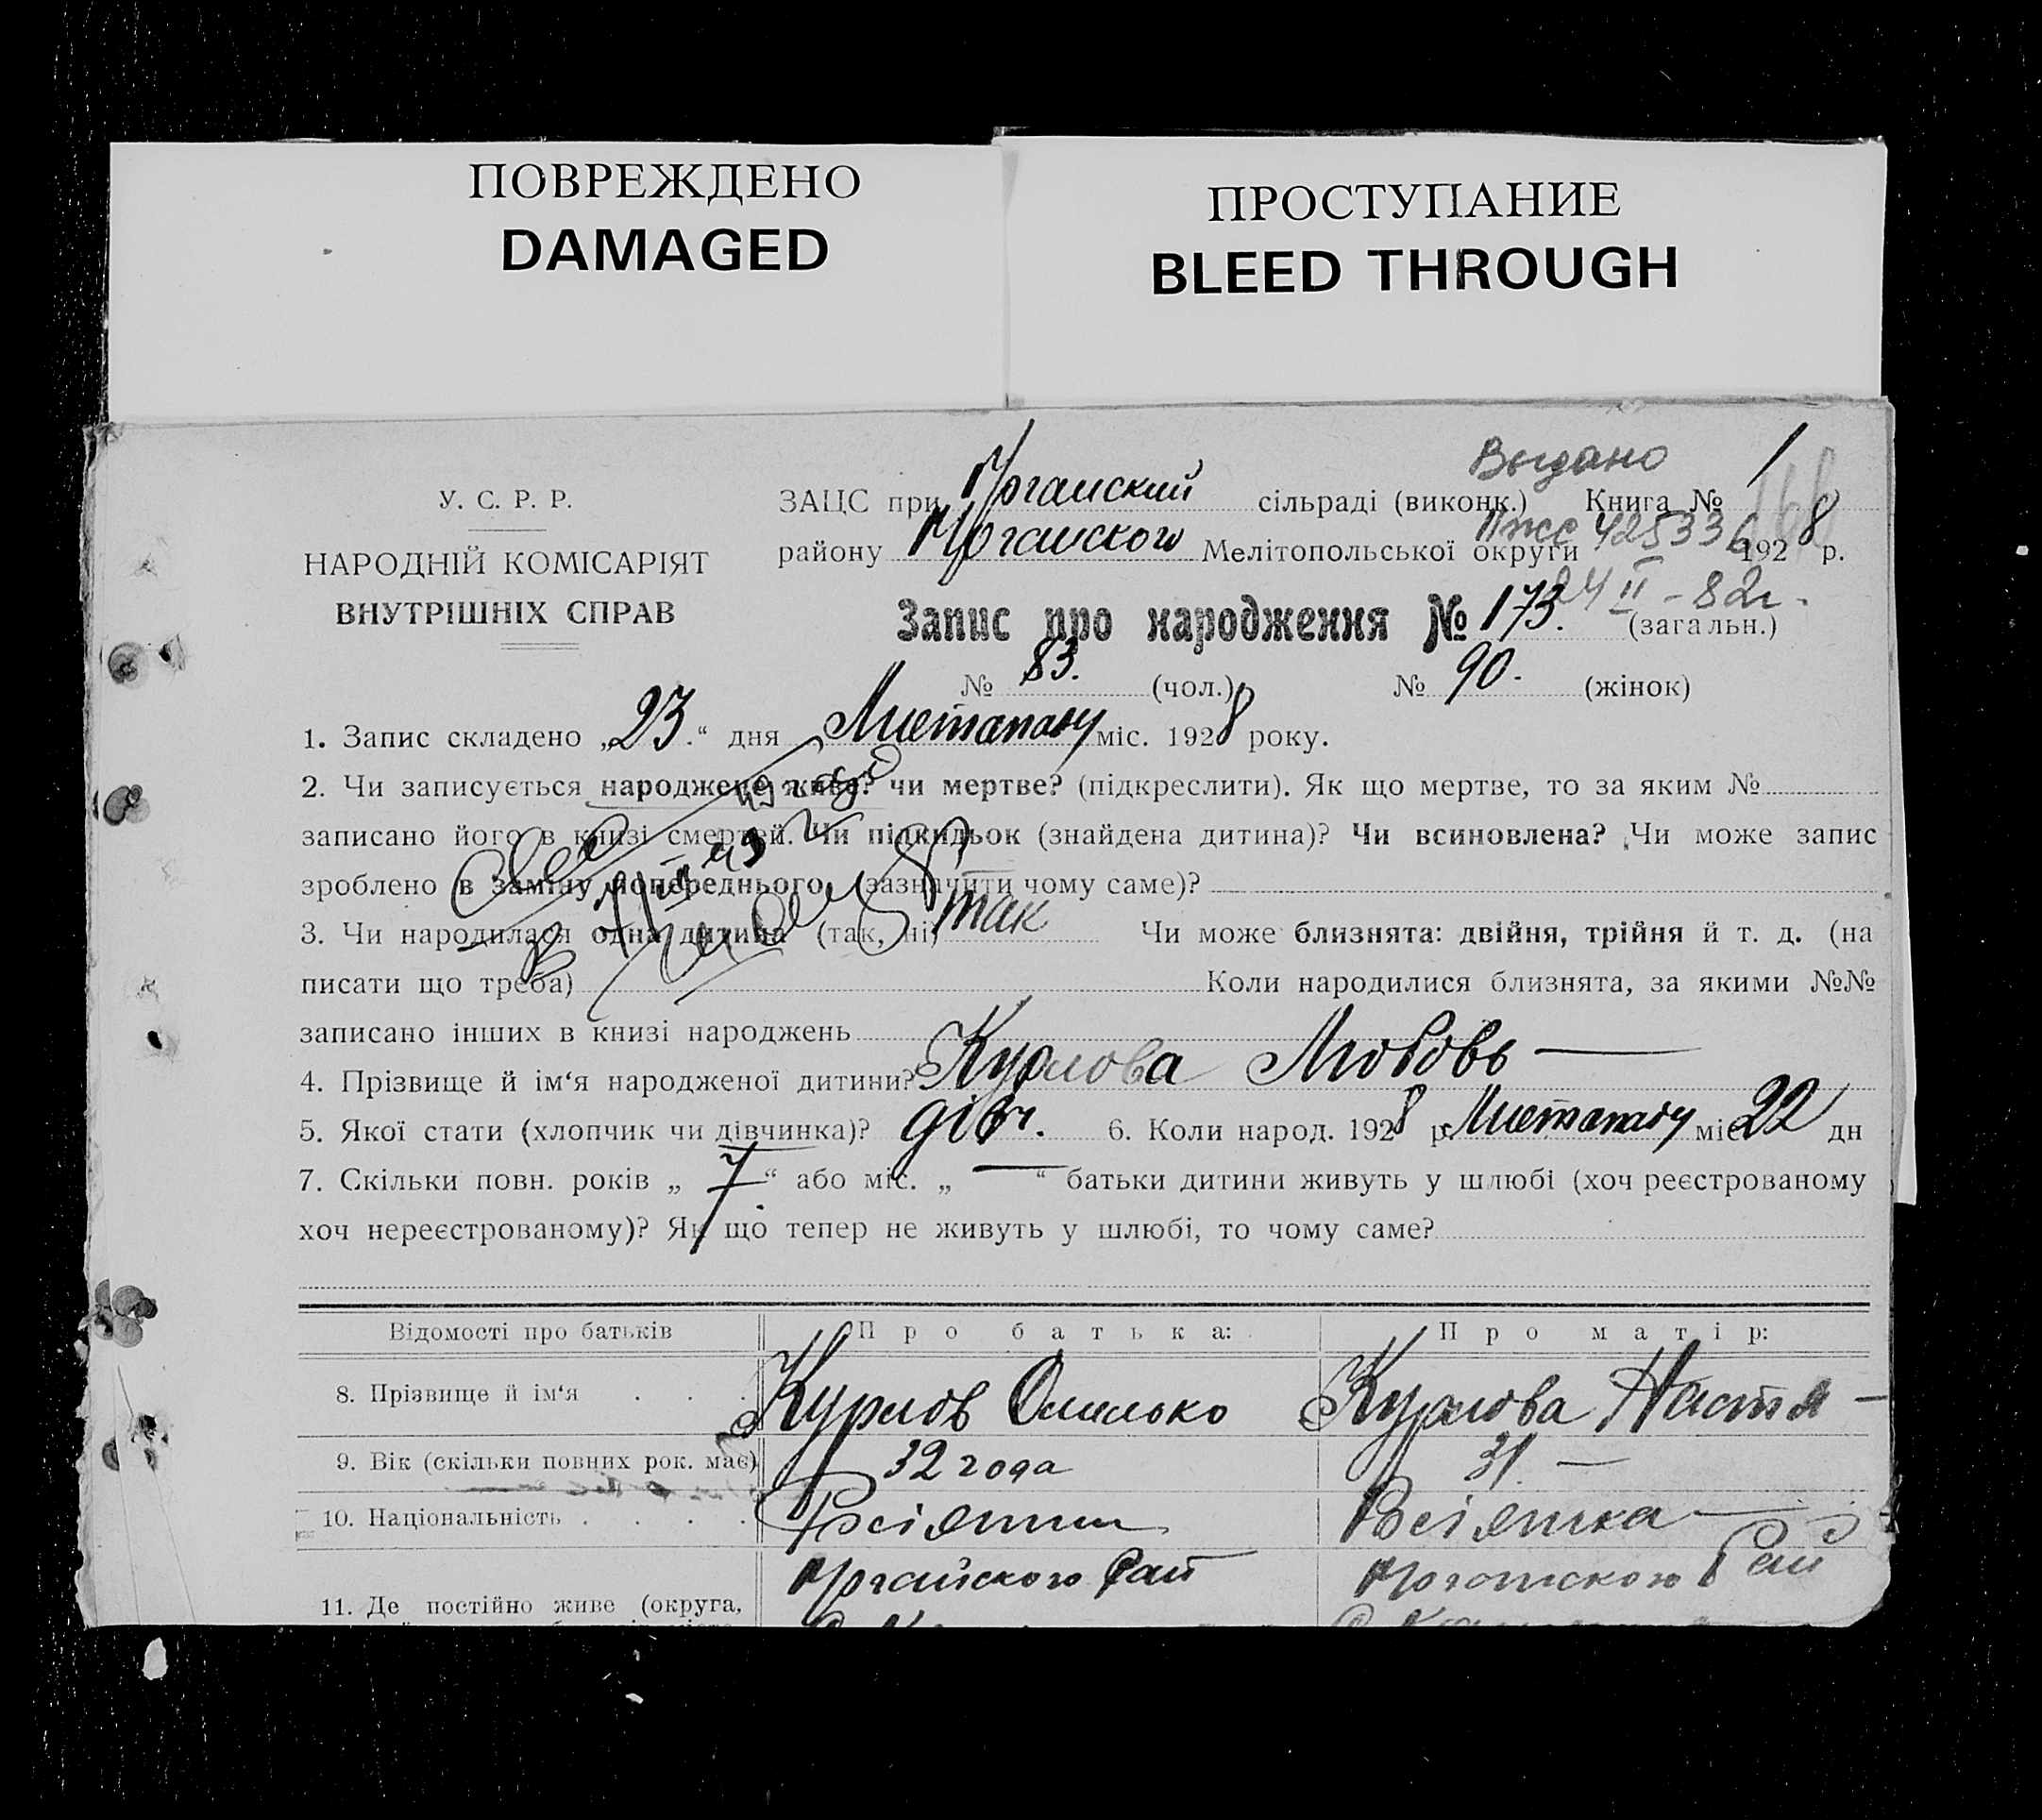 ПОВРЕЖДЕНО
DAMAGED
ПРОСТУПАНИЕ
BLEED THROUGH
Выдано
У. С. Р. Р.
НАРОДНІЙ КОМІСАРІЯТ
ВНУТРІШНІХ СПРАВ
ЗАЦС при сільраді (виконк.) Книга № 1
району Мелітопольської округи 1928 р.
425336
24 II - 82г.
Запис про народження № 173. (загальн.)
№ 83. (чол.) № 90. (жінок)
1. Запис складено „23.“ дня Листопаду міс. 1928 року.
2. Чи записується народжене живе? чи мертве? (підкреслити). Як що мертве, то за яким №
записано його в книзі смертей. Чи підкидьок (знайдена дитина)? Чи всиновлена? Чи може запис
зроблено в заміну попереднього (зазначити чому саме)?
3. Чи народилася одна дитина (так, ні) так Чи може близнята: двійня, трійня й т. д. (на
писати що треба) Коли народилися близнята, за якими №№
записано інших в книзі народжень
4. Прізвище й ім‘я народженої дитини? Курлова Любовь
5. Якої стати (хлопчик чи дівчинка)? дівч. 6. Коли народ. 1928 р. Листопаду міс. 22 дн
7. Скільки повн. років „7“ або міс. „—“ батьки дитини живуть у шлюбі (хоч реєстрованому
хоч нереєстрованому)? Як що тепер не живуть у шлюбі, то чому саме?
Відомості про батьків Про батька: Про матір:
8. Прізвище й ім‘я . . . Курлов Омелько Курлова Настя —
9. Вік (скільки повних рок. має) 32 года 31. —
10. Національність . . . .
11. Де постійно живе (округа,